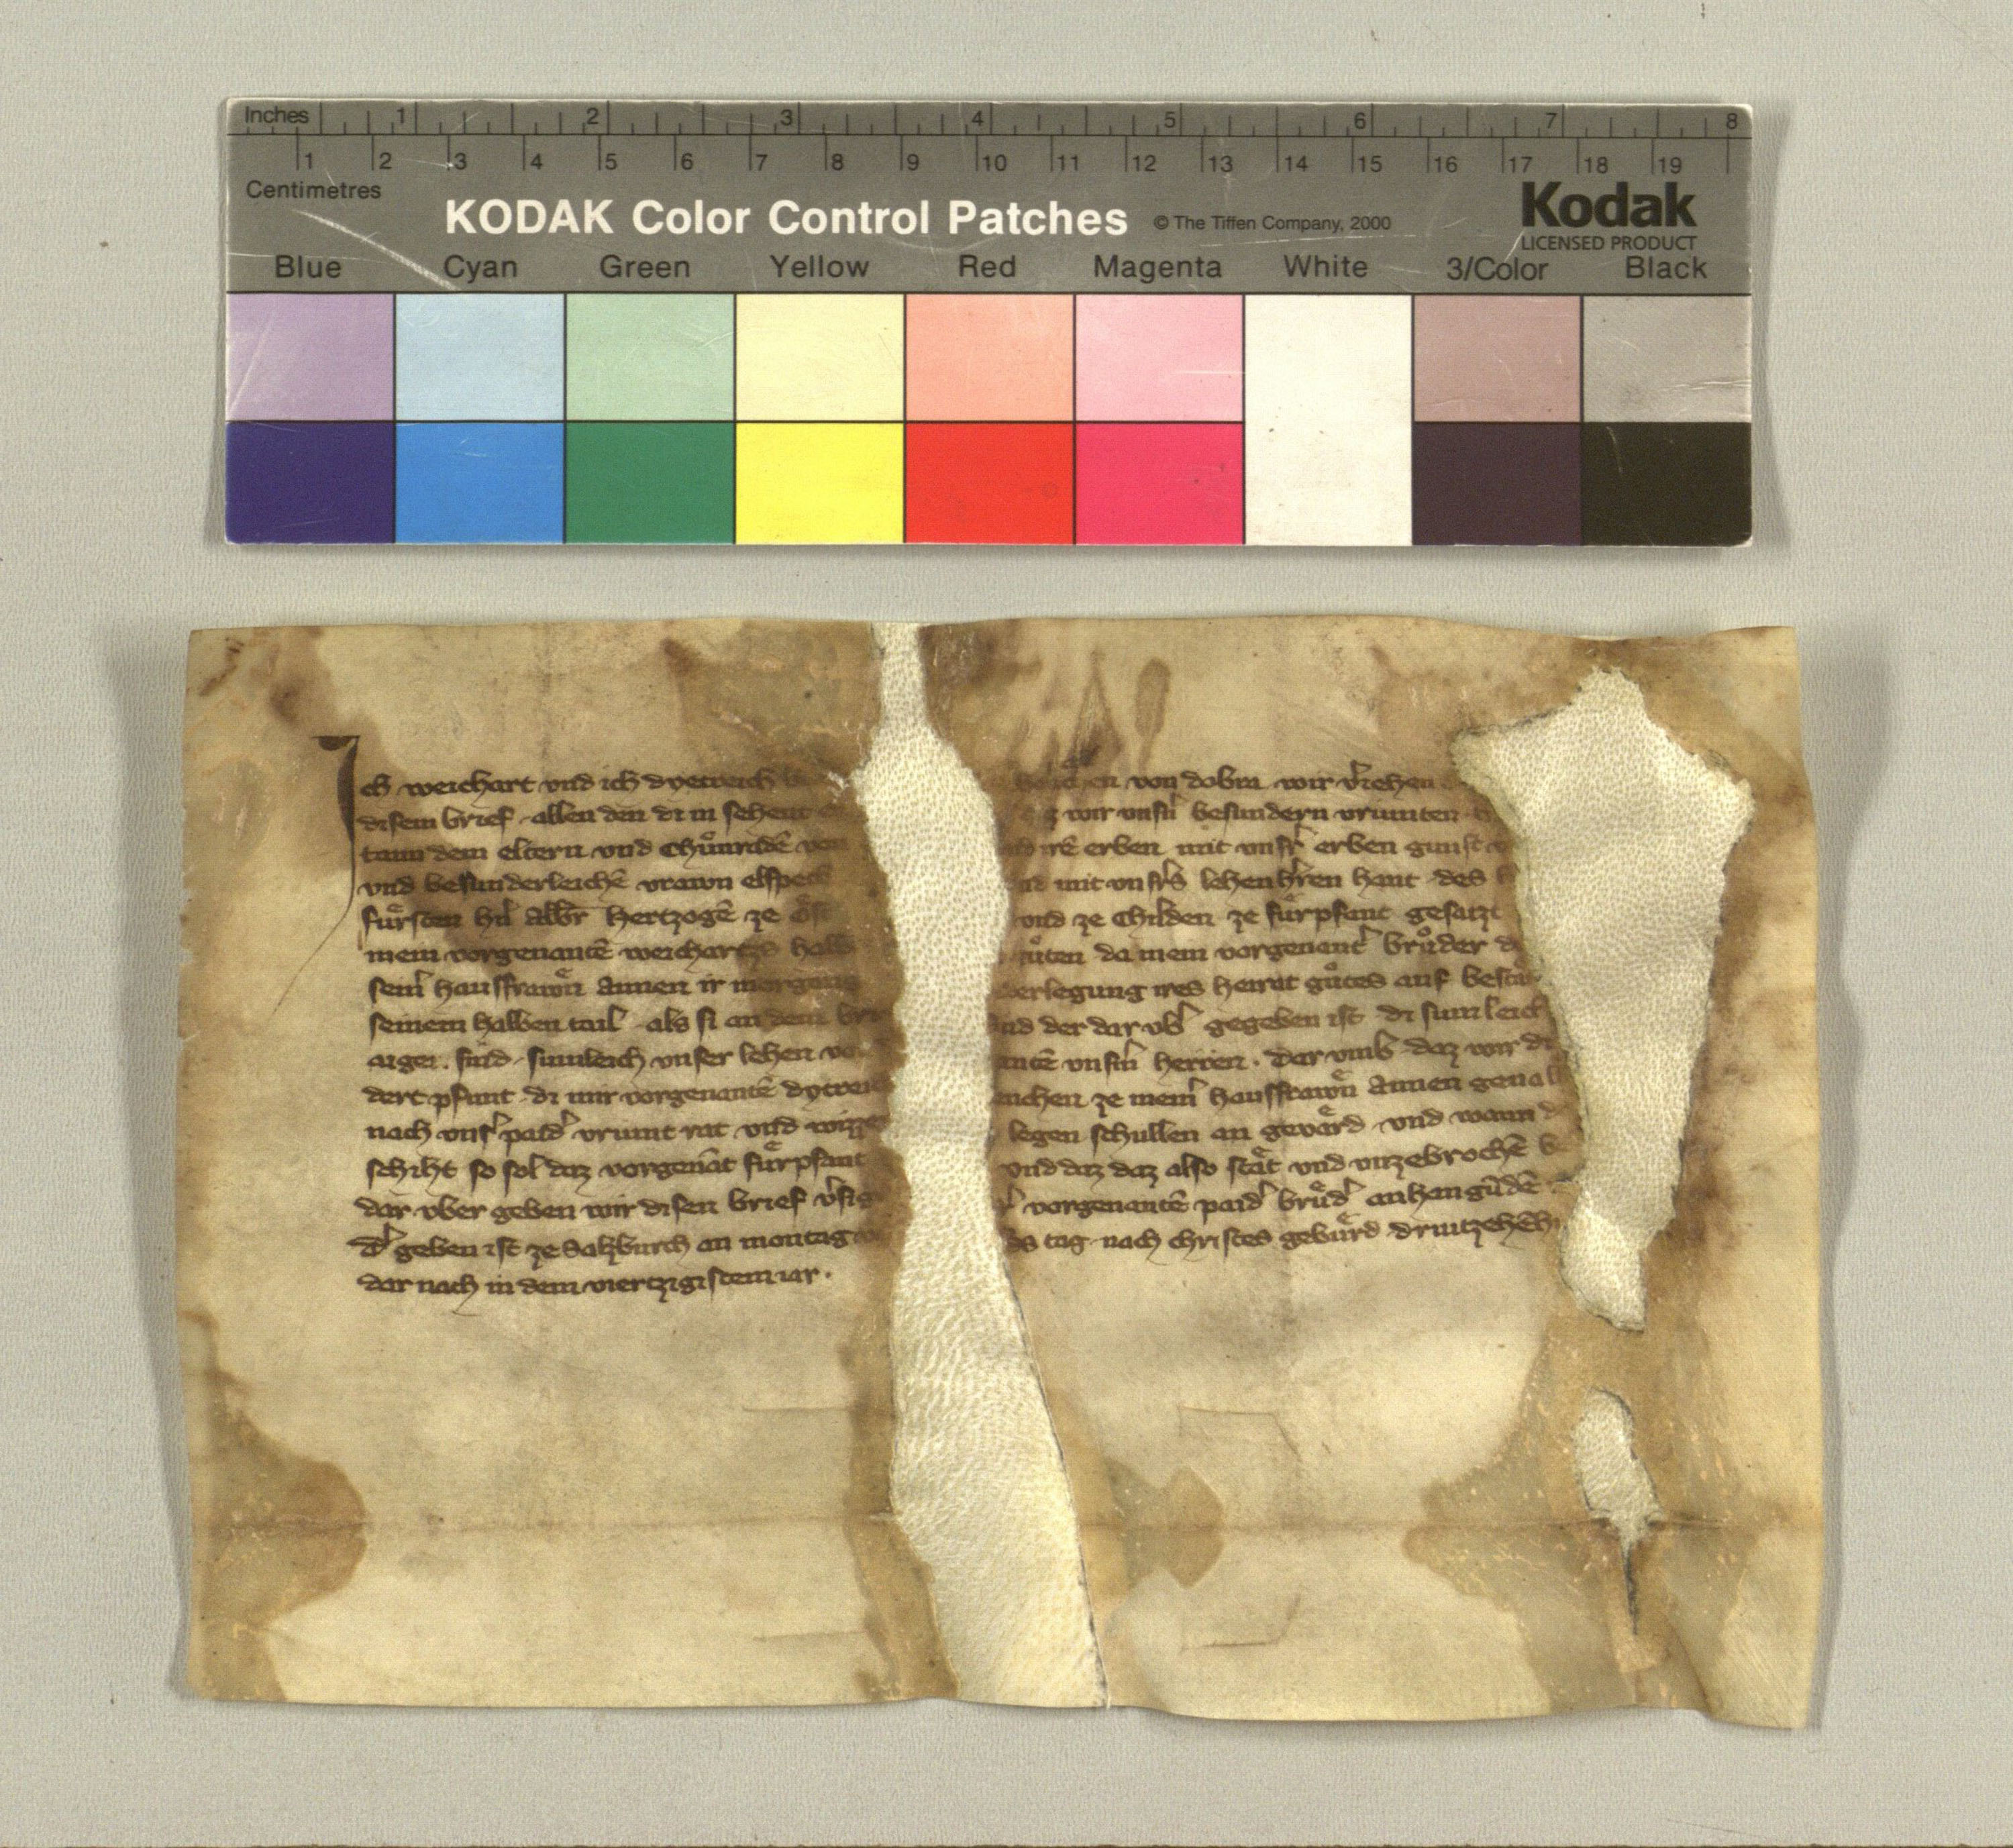 Inches 1 2 3 4 5 6 7 8
1 2 3 4 5 6 7 8 9 10 11 12 13 14 15 16 17 18 19
Centimetres
KODAK Color Control Patches © The Tiffen Company, 2000 Kodak
LICENSED PRODUCT
Blue Cyan Green Yellow Red Magenta White 3/Color Black
Ich weichart vnd ich dyetreich von dobra wir v̓iehen
disem brief allen den di in sehent wir vnsn̓ besundern vrunten
dem eltern vnd Chůnradē irē erben mit vnsr̓ erben gunst
vnd besunderleichē vrawn elspet mit vnsr̓s lehenhr̓ren hant des
fuͤrsten hn̓ Albr̓ hertzogē ze vnd ze Childen ze fuͤrpfant gesatzt
mein vorgenantē weichartes halb da mein vorgenant̓ bruͦder
seim̓ hausfrawͤn Annen ir morgeng verlegung ires heirat guͦtes auf
seinem halben tail als si an dem vnd der dar vb̓ gegeben ist di sumleich
aigen sind sumleich vnser lehen vnsm̓ herren dar vmb daz wir di
dert pfunt di mir vorgenantē dytreich ze meim̓ hausfrawͤn Annen
nach vnsr̓ paid̓ vrunt rat vnd legen schullen an geuaͤrd vnd wann
schiht so sol daz vorgenāt fuͤrpfant vnd daz daz also staͤt vnd vnzebrochē
dar vber geben wir disen brief vorgenantē paid̓ bruͤd̓ anhangūdē
d̓ geben ist ze Salzburch an montag tag nach christes gebuͤrd
dar nach in dem viertzigistem iar